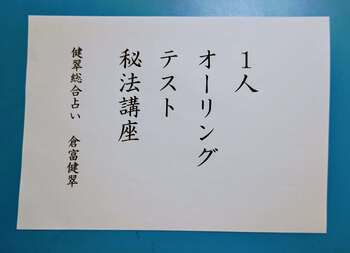 1人
オーリング
テスト
秘法講座
健翠総合占い　倉富健翠